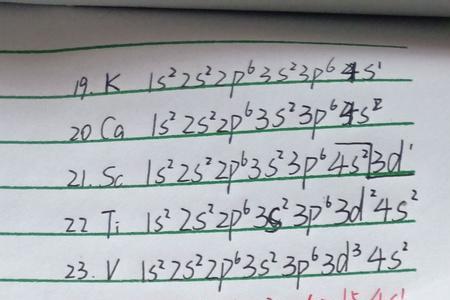 19. K 1s² 2s² 2p⁶ 3s² 3p⁶ 4s¹
20 Ca 1s² 2s² 2p⁶ 3s² 3p⁶ 4s²
21. Sc 1s² 2s² 2p⁶ 3s² 3p⁶ 4s² 3d¹
22 Ti 1s² 2s² 2p⁶ 3s² 3p⁶ 3d² 4s²
23. V 1s² 2s² 2p⁶ 3s² 3p⁶ 3d³ 4s²